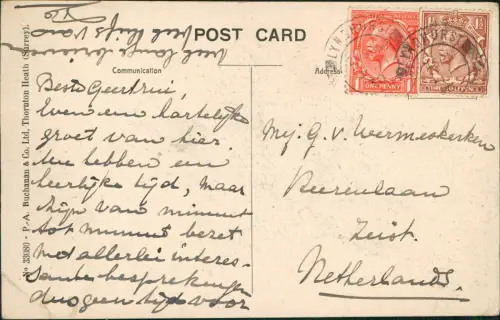 POST CARD
Communication
Address
Beste Geertrui,
Even een hartelijke
groet van hier.
We hebben een
heerlijke tijd, maar
zijn van minuut
tot minuut bezet
met allerlei interes-
sante besprekingen
dus geen tijd voor
veel lange brieven
veel liefs van
Mej. G. v. Wermeskerken
Beerenlaan
Zeist.
Netherlands.
ONE PENNY
LYNDHURST
No 33080 - P.A. Buchanan & Co. Ltd, Thornton Heath (Surrey).